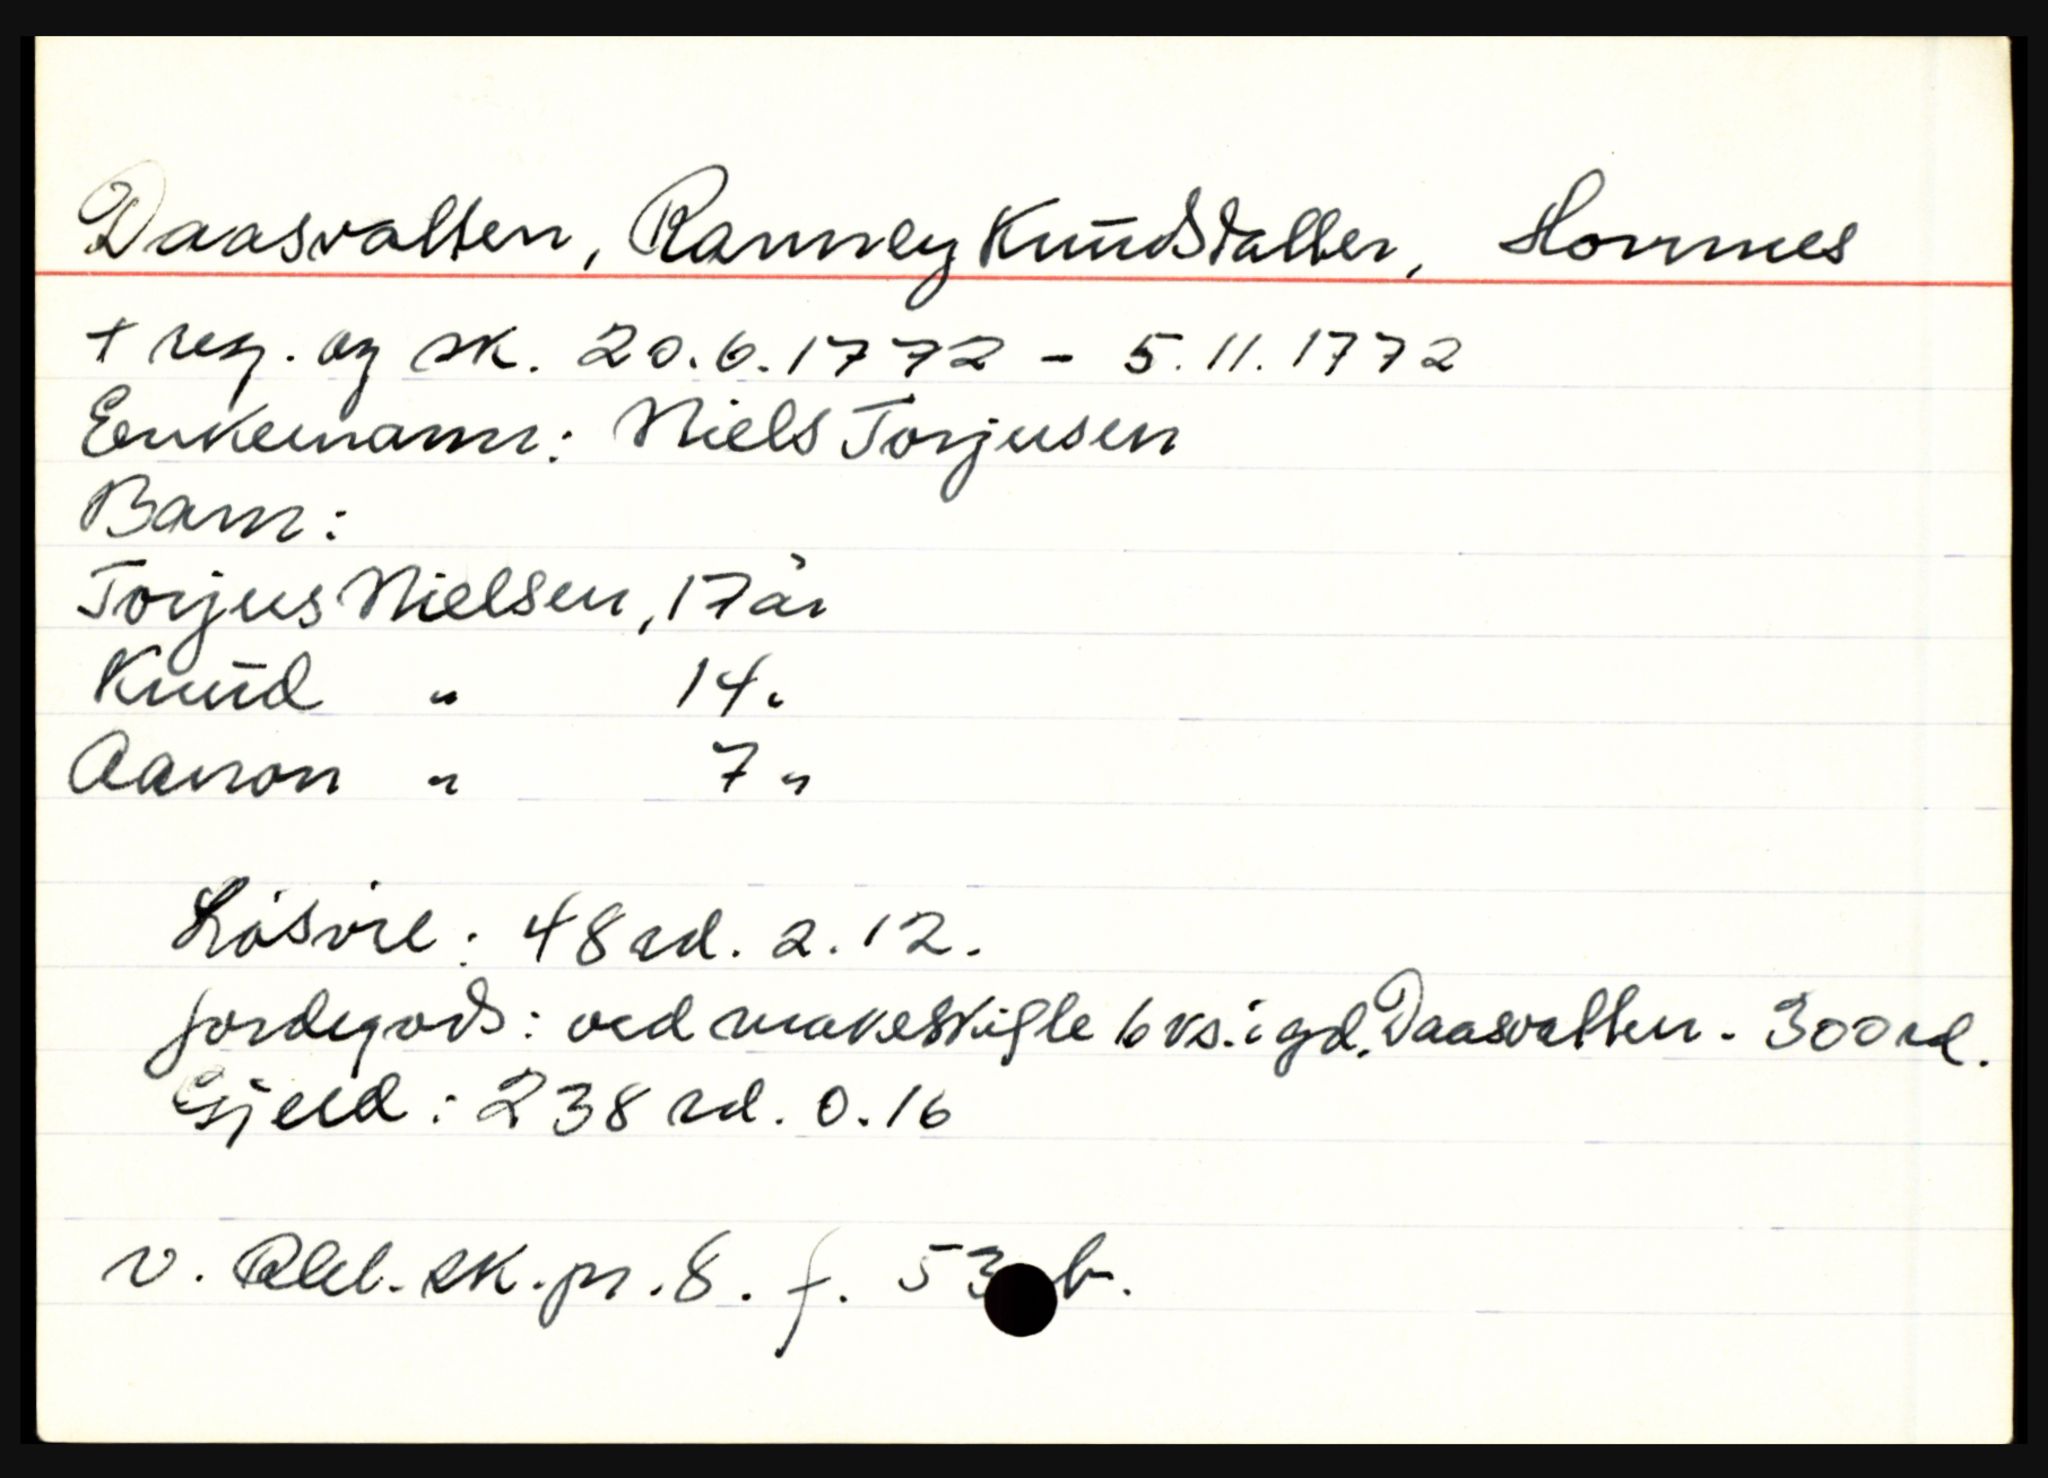 Daasvatten, Ranney Knudsdatter, Hornnes
+ reg. og sk. 20.6.1772 - 5.11.1772
Enkemann: Niels Torjusen
Barn:
Torjus Nielsen, 17 år
Knud " 14 "
Aanon " 7 "
Løsøre: 48 rd. 2. 12.
Jordegods: ved makeskifte 6 ks. i gd. Daasvatten - 300 rd.
Gjeld: 238 rd. 0. 16
v. Rbl. sk. pr. 8. f. 53 b.